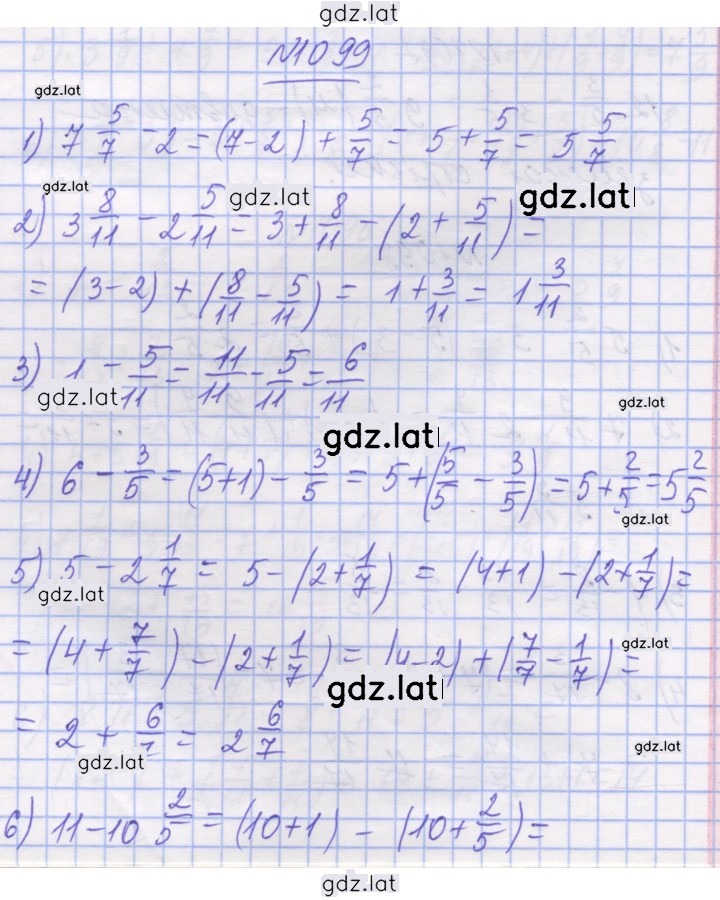 gdz.lat
№1099
gdz.lat
1) 7 5/7 - 2 = (7-2) + 5/7 = 5 + 5/7 = 5 5/7
gdz.lat gdz.lat gdz.lat
2) 3 8/11 - 2 5/11 = 3 + 8/11 - (2 + 5/11) =
= (3-2) + (8/11 - 5/11) = 1 + 3/11 = 1 3/11
3) 1 - 5/11 = 11/11 - 5/11 = 6/11
gdz.lat gdz.lat
gdz.lat
4) 6 - 3/5 = (5+1) - 3/5 = 5 + (5/5 - 3/5) = 5 + 2/5 = 5 2/5
gdz.lat
5) 5 - 2 1/7 = 5 - (2 + 1/7) = (4+1) - (2 + 1/7) =
gdz.lat
= (4 + 7/7) - (2 + 1/7) = (4-2) + (7/7 - 1/7) =
gdz.lat
gdz.lat
= 2 + 6/7 = 2 6/7
gdz.lat gdz.lat
6) 11 - 10 2/5 = (10+1) - (10 + 2/5) =
gdz.lat